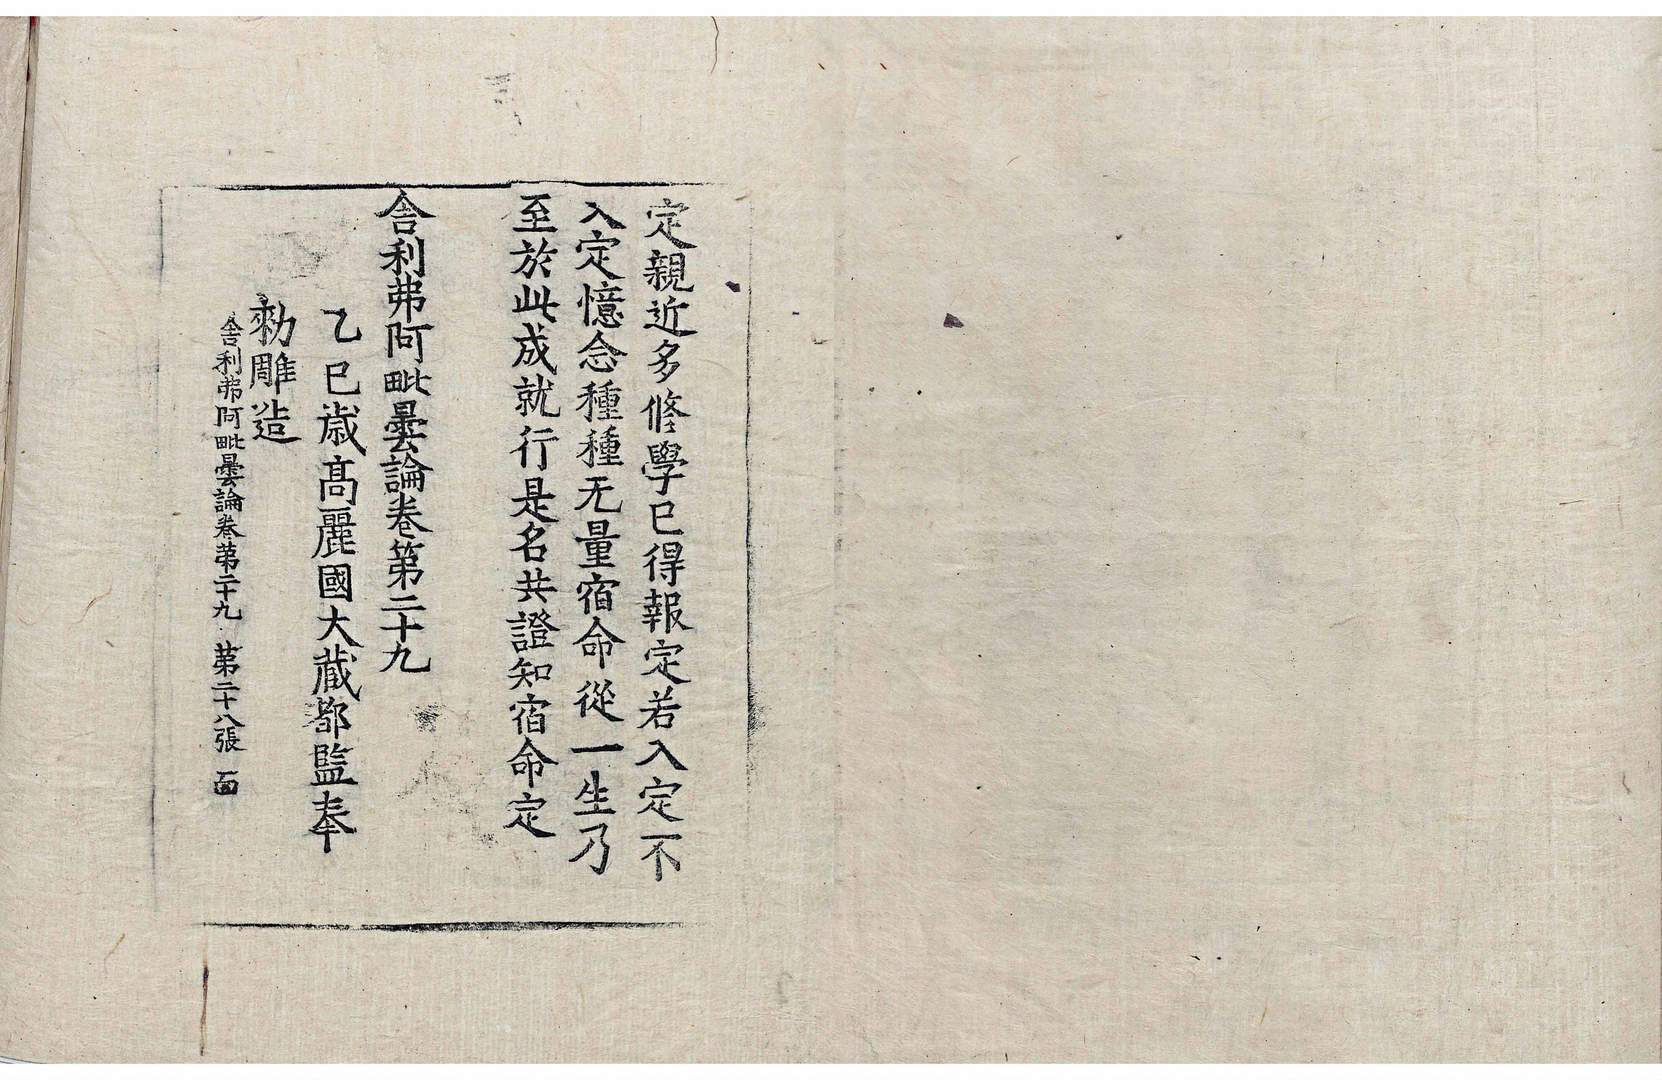 定親近多修學已得報定若入定不
入定憶念種種无量宿命從一生乃
至於此成就行是名共證知宿命定
舍利弗阿毗曇論卷第二十九
乙巳歲高麗國大藏都監奉
勅雕造
舍利弗阿毗曇論卷第二十九 第二十八張